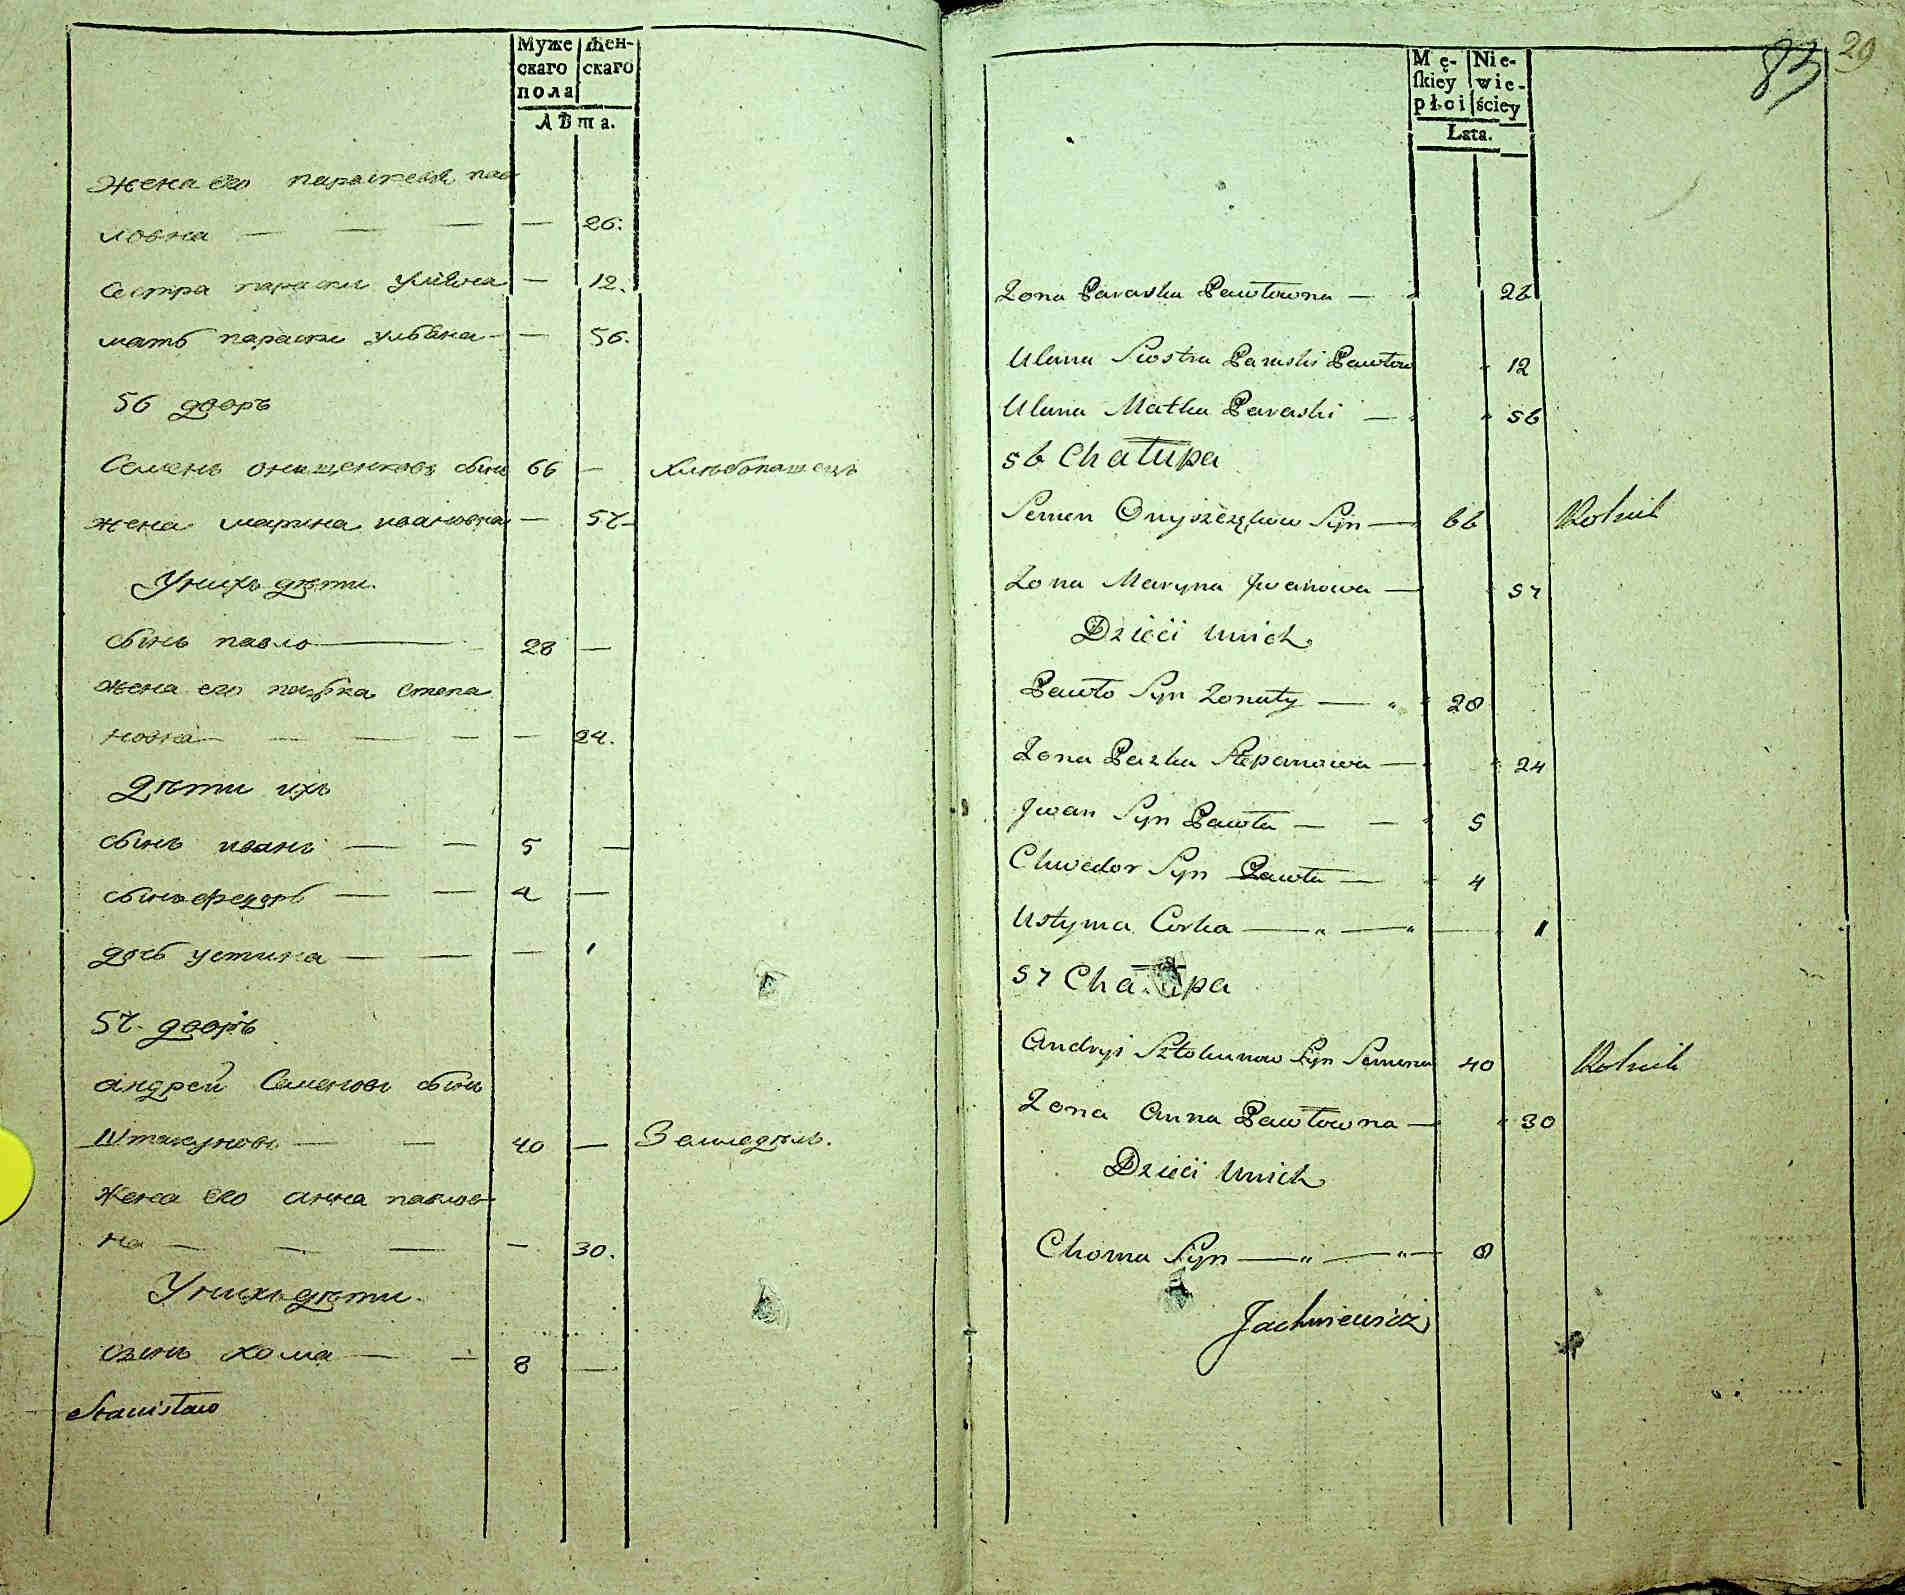 Муже Жен-
скаго скаго
пола
Лѣта.
жена его параскевия пав
ловна — — — — 26.
сестра параски уляна — 12.
мать параски ульяна — — 56.
56 дворъ
Семенъ онищенковъ сынъ 66 — хлѣбопашецъ
жена марина ивановна — 57
У нихъ дѣти
сынъ павло — 28 —
жена его пазька степа
новна — — — — — 24.
Дѣти ихъ
сынъ иванъ — — 5 —
сынъ федоръ — — 4 —
дочь устина — — — 1
57 дворъ
андрей Семеновъ сынъ
Штакуновъ — — 40 — Земледѣл.
жена его анна павлов
на — — — — 30.
У нихъ дѣти.
сынъ хома — — 8 —
Stanisław
83 29
Mę- Nie-
skiey wie-
płci ściey
Lata.
Żona Paraska Pawłowna — 26
Ulana Siostra Paraski Pawłow 12
Ulana Matka Paraski — 56
56 Chałupa
Semen Onyszczękow Syn — 66 Rolnik
Żona Maryna Jwanowa — 57
Dzieci unich
Pawło Syn Żonaty — 28
Żona Pazka Stepanowa — 24
Jwan Syn Pawła — — 5
Chwedor Syn Pawła — 4
Ustyma Corka — " — " — 1
57 Chałupa
Andryi Sztokunow Syn Semena 40 Rolnik
Żona Anna Pawłowna — 30
Dzieci Unich
Choma Syn — " — " — 8
Jachniewicz